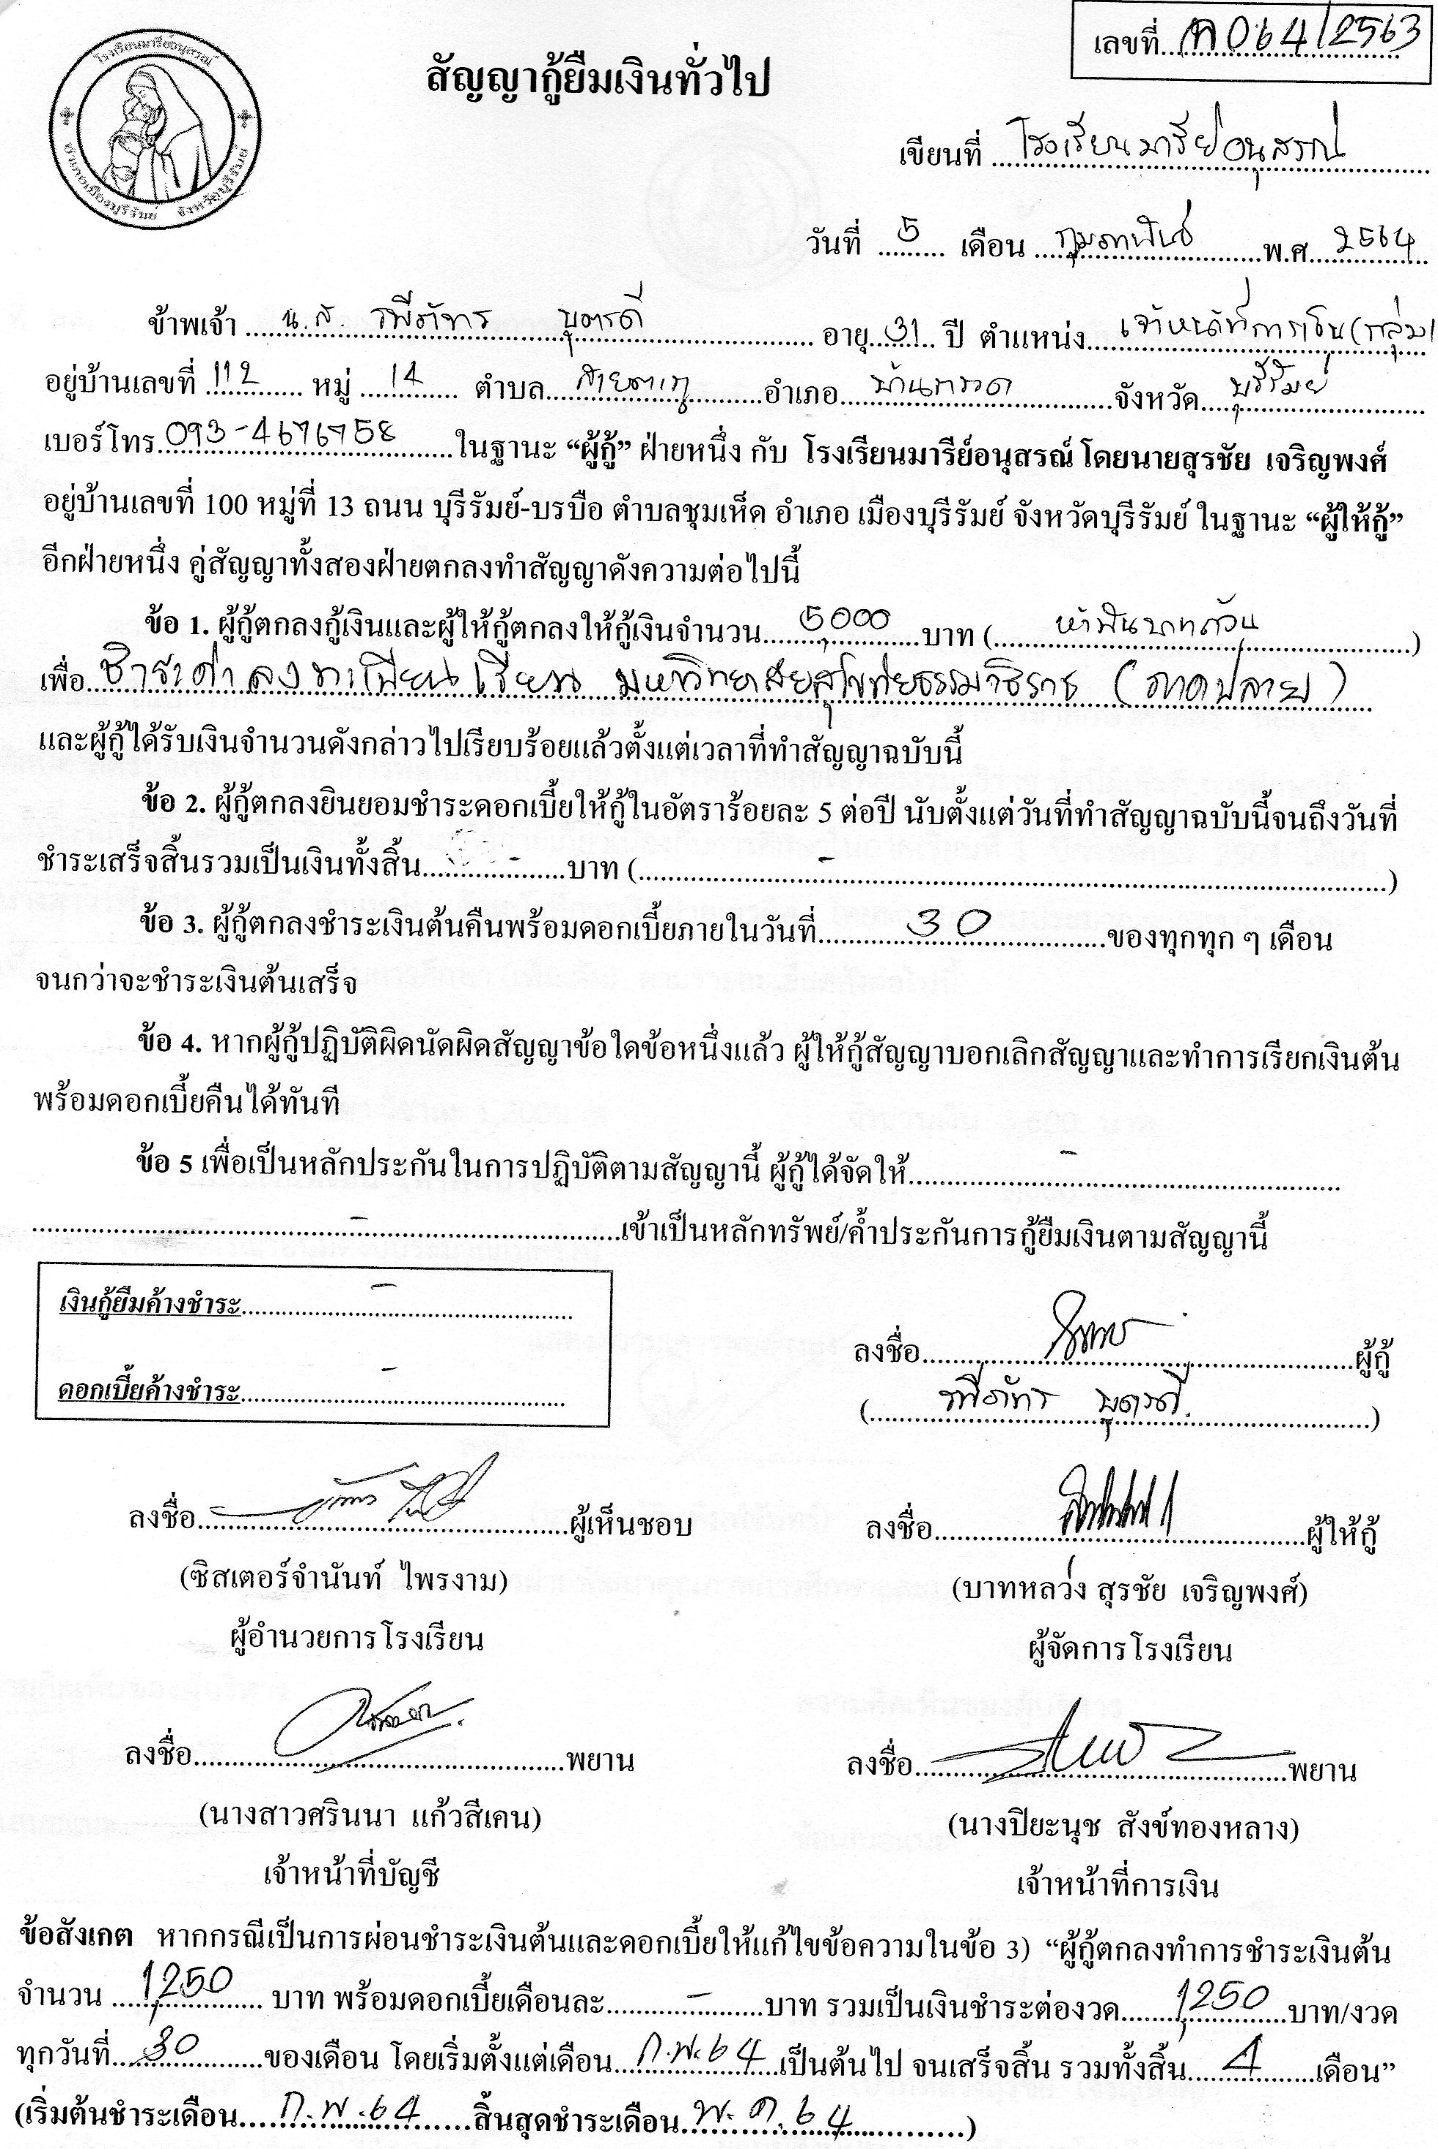 โรงเรียนมารีย์อนุสรณ์
อำเภอเมืองบุรีรัมย์ จังหวัดบุรีรัมย์
เลขที่ ก064/2563
สัญญากู้ยืมเงินทั่วไป
เขียนที่ โรงเรียนมารีย์อนุสรณ์
วันที่ 5 เดือน กุมภาพันธ์ พ.ศ. 2564
ข้าพเจ้า น.ส. รพีภัทร บุตรดี อายุ 31 ปี ตำแหน่ง เจ้าหน้าที่การเงิน(กลุ่ม)
อยู่บ้านเลขที่ 112 หมู่ 14 ตำบล สายตะกู อำเภอ บ้านกรวด จังหวัด บุรีรัมย์
เบอร์โทร 093-4676758 ในฐานะ “ผู้กู้” ฝ่ายหนึ่ง กับ โรงเรียนมารีย์อนุสรณ์ โดยนายสุรชัย เจริญพงศ์
อยู่บ้านเลขที่ 100 หมู่ที่ 13 ถนน บุรีรัมย์-บรบือ ตำบลชุมเห็ด อำเภอ เมืองบุรีรัมย์ จังหวัดบุรีรัมย์ ในฐานะ “ผู้ให้กู้”
อีกฝ่ายหนึ่ง คู่สัญญาทั้งสองฝ่ายตกลงทำสัญญาดังความต่อไปนี้
ข้อ 1. ผู้กู้ตกลงกู้เงินและผู้ให้กู้ตกลงให้กู้เงินจำนวน 5,000 บาท ( ห้าพันบาทถ้วน )
เพื่อ ชำระค่าลงทะเบียนเรียน มหาวิทยาลัยสุโขทัยธรรมาธิราช (ภาคปลาย)
และผู้กู้ได้รับเงินจำนวนดังกล่าวไปเรียบร้อยแล้วตั้งแต่เวลาที่ทำสัญญาฉบับนี้
ข้อ 2. ผู้กู้ตกลงยินยอมชำระดอกเบี้ยให้กู้ในอัตราร้อยละ 5 ต่อปี นับตั้งแต่วันที่ทำสัญญาฉบับนี้จนถึงวันที่
ชำระเสร็จสิ้นรวมเป็นเงินทั้งสิ้น - บาท ( - )
ข้อ 3. ผู้กู้ตกลงชำระเงินต้นคืนพร้อมดอกเบี้ยภายในวันที่ 30 ของทุกทุก ๆ เดือน
จนกว่าจะชำระเงินต้นเสร็จ
ข้อ 4. หากผู้กู้ปฏิบัติผิดนัดผิดสัญญาข้อใดข้อหนึ่งแล้ว ผู้ให้กู้สัญญาบอกเลิกสัญญาและทำการเรียกเงินต้น
พร้อมดอกเบี้ยคืนได้ทันที
ข้อ 5 เพื่อเป็นหลักประกันในการปฏิบัติตามสัญญานี้ ผู้กู้ได้จัดให้ -
- เข้าเป็นหลักทรัพย์/ค้ำประกันการกู้ยืมเงินตามสัญญานี้
เงินกู้ยืมค้างชำระ -
ดอกเบี้ยค้างชำระ -
ลงชื่อ ผู้กู้
( รพีภัทร บุตรดี )
ลงชื่อ ผู้เห็นชอบ
(ซิสเตอร์จำนันท์ ไพรงาม)
ผู้อำนวยการโรงเรียน
ลงชื่อ ผู้ให้กู้
(บาทหลว่ง สุรชัย เจริญพงศ์)
ผู้จัดการโรงเรียน
ลงชื่อ พยาน
(นางสาวศรินนา แก้วสีเคน)
เจ้าหน้าที่บัญชี
ลงชื่อ พยาน
(นางปิยะนุช สังข์ทองหลาง)
เจ้าหน้าที่การเงิน
ข้อสังเกต หากกรณีเป็นการผ่อนชำระเงินต้นและดอกเบี้ยให้แก้ไขข้อความในข้อ 3) “ผู้กู้ตกลงทำการชำระเงินต้น
จำนวน 1,250 บาท พร้อมดอกเบี้ยเดือนละ - บาท รวมเป็นเงินชำระต่องวด 1,250 บาท/งวด
ทุกวันที่ 30 ของเดือน โดยเริ่มตั้งแต่เดือน ก.พ. 64 เป็นต้นไป จนเสร็จสิ้น รวมทั้งสิ้น 4 เดือน”
(เริ่มต้นชำระเดือน ก.พ. 64 สิ้นสุดชำระเดือน พ.ค. 64 )